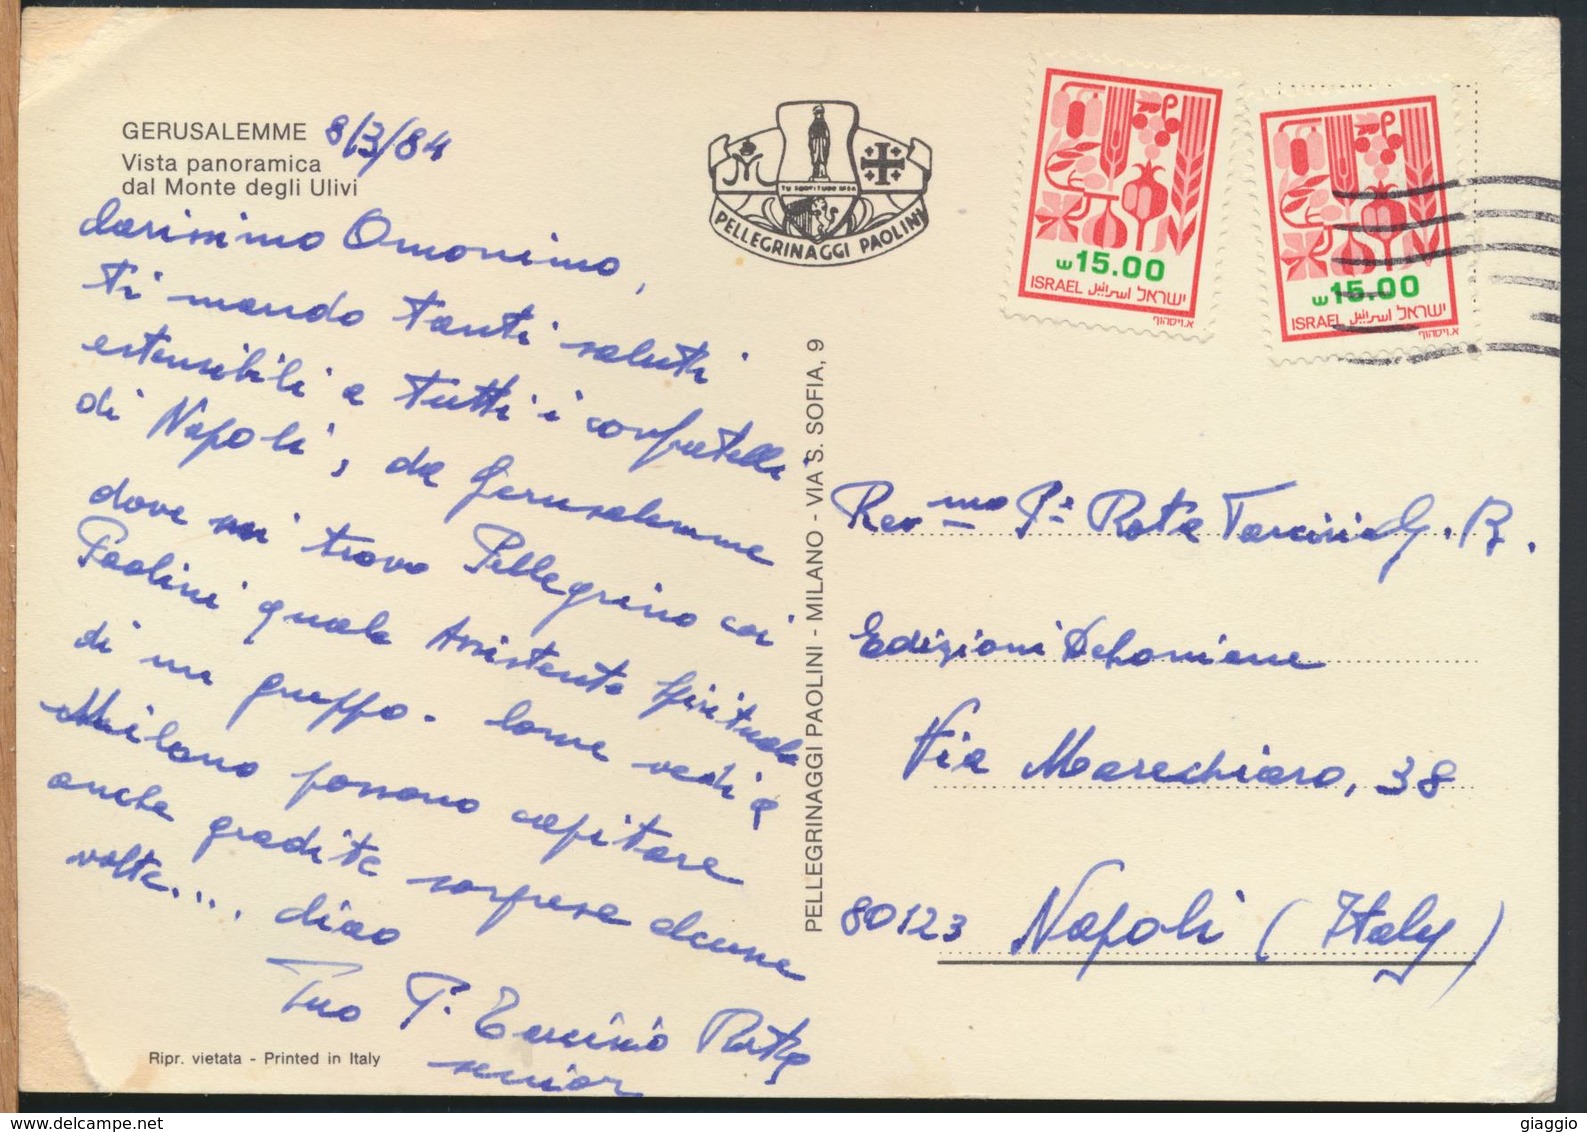 GERUSALEMME 8/3/84
Vista panoramica
dal Monte degli Ulivi
Carissimo Omonimo,
ti mando tanti saluti
estensibili a tutti i confratelli
di Napoli, da Gerusalemme
dove mi trovo Pellegrino coi
Paolini quale Assistente Spirituale
di un gruppo. Come vedi a
Milano possono capitare
anche gradite sorprese alcune
volte.... Ciao
Tuo P. Tarcisio Rota
senior
Ripr. vietata - Printed in Italy
TU SOLLICITUDO
PELLEGRINAGGI PAOLINI
PELLEGRINAGGI PAOLINI - MILANO - VIA S. SOFIA, 9
ש 15.00
ISRAEL اسرائيل ישראל
א.ויסהוף
ש 15.00
ISRAEL اسرائيل ישראל
א.ויסהוף
Rev.mo P. Rota Tarcisio G. B.
Edizioni Dehoniane
Via Marechiaro, 38
80123 Napoli (Italy)
giaggio